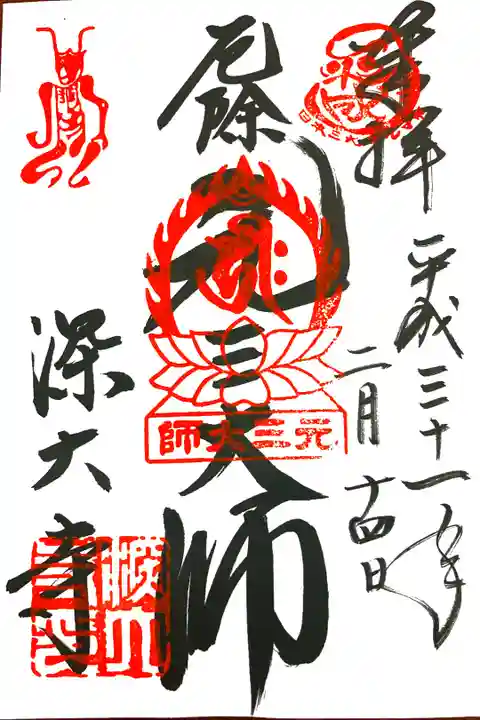 奉拝
平成三十一年
二月十四日
厄除
元三大師
元三大師
深大寺